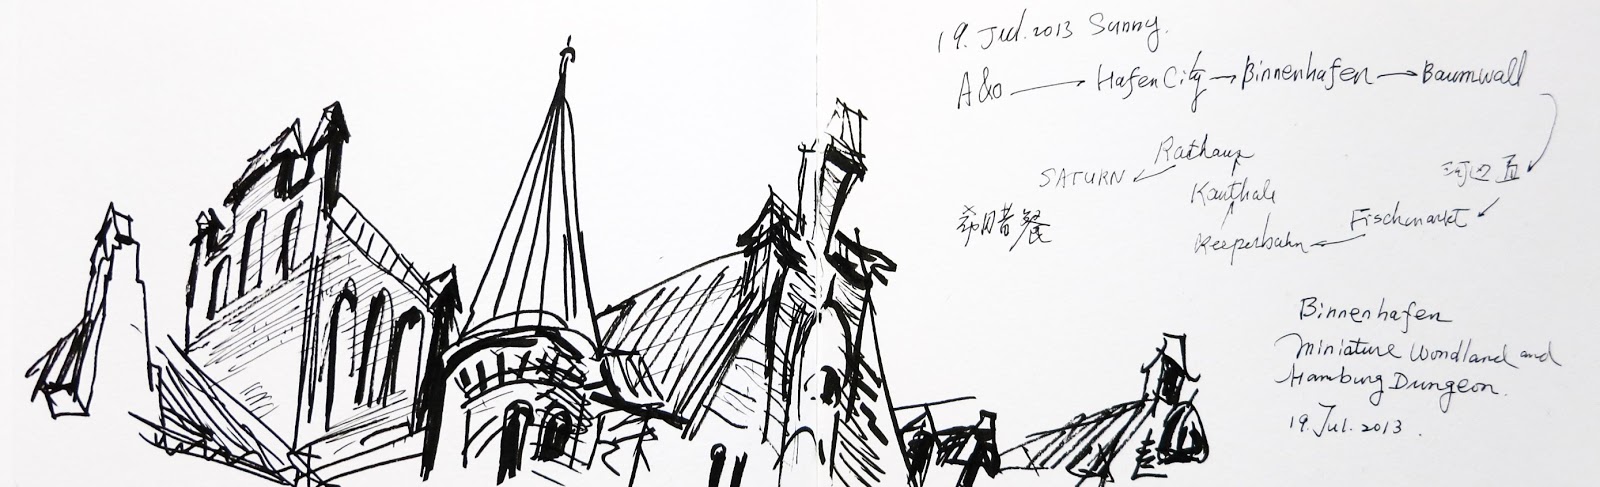 19. Jul. 2013 Sunny.
A&o → HafenCity → Binnenhafen → Baumwall
Rathaus
SATURN ←
希腊餐
Fischmarkt
Reeperbahn ←
Binnenhafen
Miniature Wondland and
Hamburg Dungeon.
19. Jul. 2013.